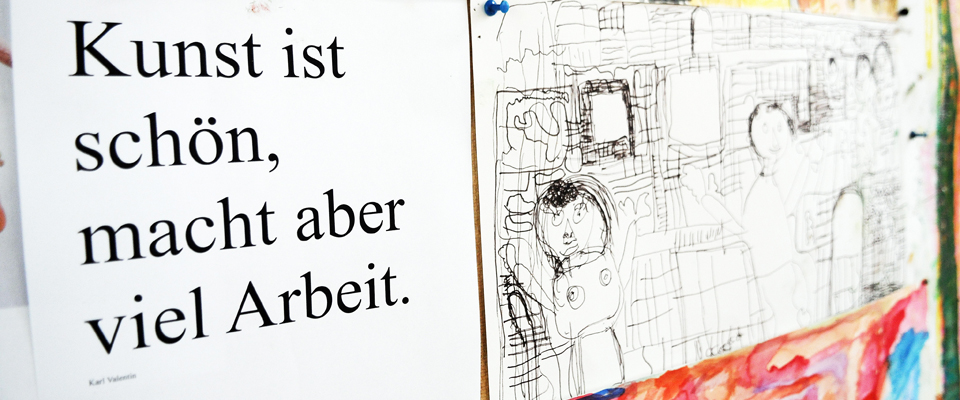 Kunst ist
schön,
macht aber
viel Arbeit.
Karl Valentin